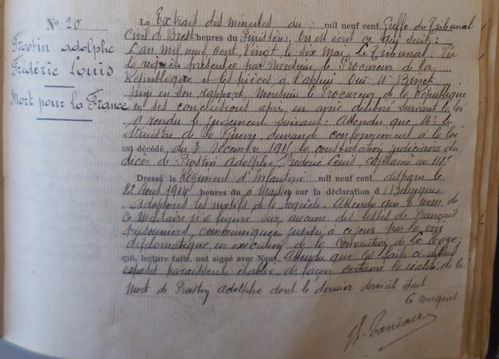 N° 20
Frostin Adolphe
Frédéric Louis
Mort pour la France
Le Extrait des minutes du mil neuf cent Greffe du Tribunal
Civil de Brest heures du Finistère, en est écrit ce qui suit:
L'an mil neuf cent vingt le six mai, le Tribunal: Vu
la requête présentée par Monsieur le Procureur de la
République et les pièces à l'appui Ouï Mr
Juge en son rapport, Monsieur le Procureur de la République
en ses conclusions après en avoir délibéré suivant la loi
a rendu le jugement suivant: Attendu que Mr le
Ministre de la Guerre, demande conformément à la loi
est décédé, du 3 Décembre 1915 la constatation judiciaire du
décès de Frostin Adolphe Frédéric Louis, capitaine au
Dressé le Régiment d'Infanterie mil neuf cent disparu le
22 Août 1914 heures du à sur la déclaration de Belgique
Adoptant les motifs de la requête. Attendu que le nom de
ce militaire n'a figuré sur aucune des listes de Français
prisonniers, communiquées jusqu'à ce jour par la voie
diplomatique, en exécution de la convention de La Haye,
qui, lecture faite, ont signé avec Nous, Attendu que les faits ci-dessus
exposés paraissent établir de façon certaine la réalité de la
mort de Frostin Adolphe dont le dernier domicile était
le conquet